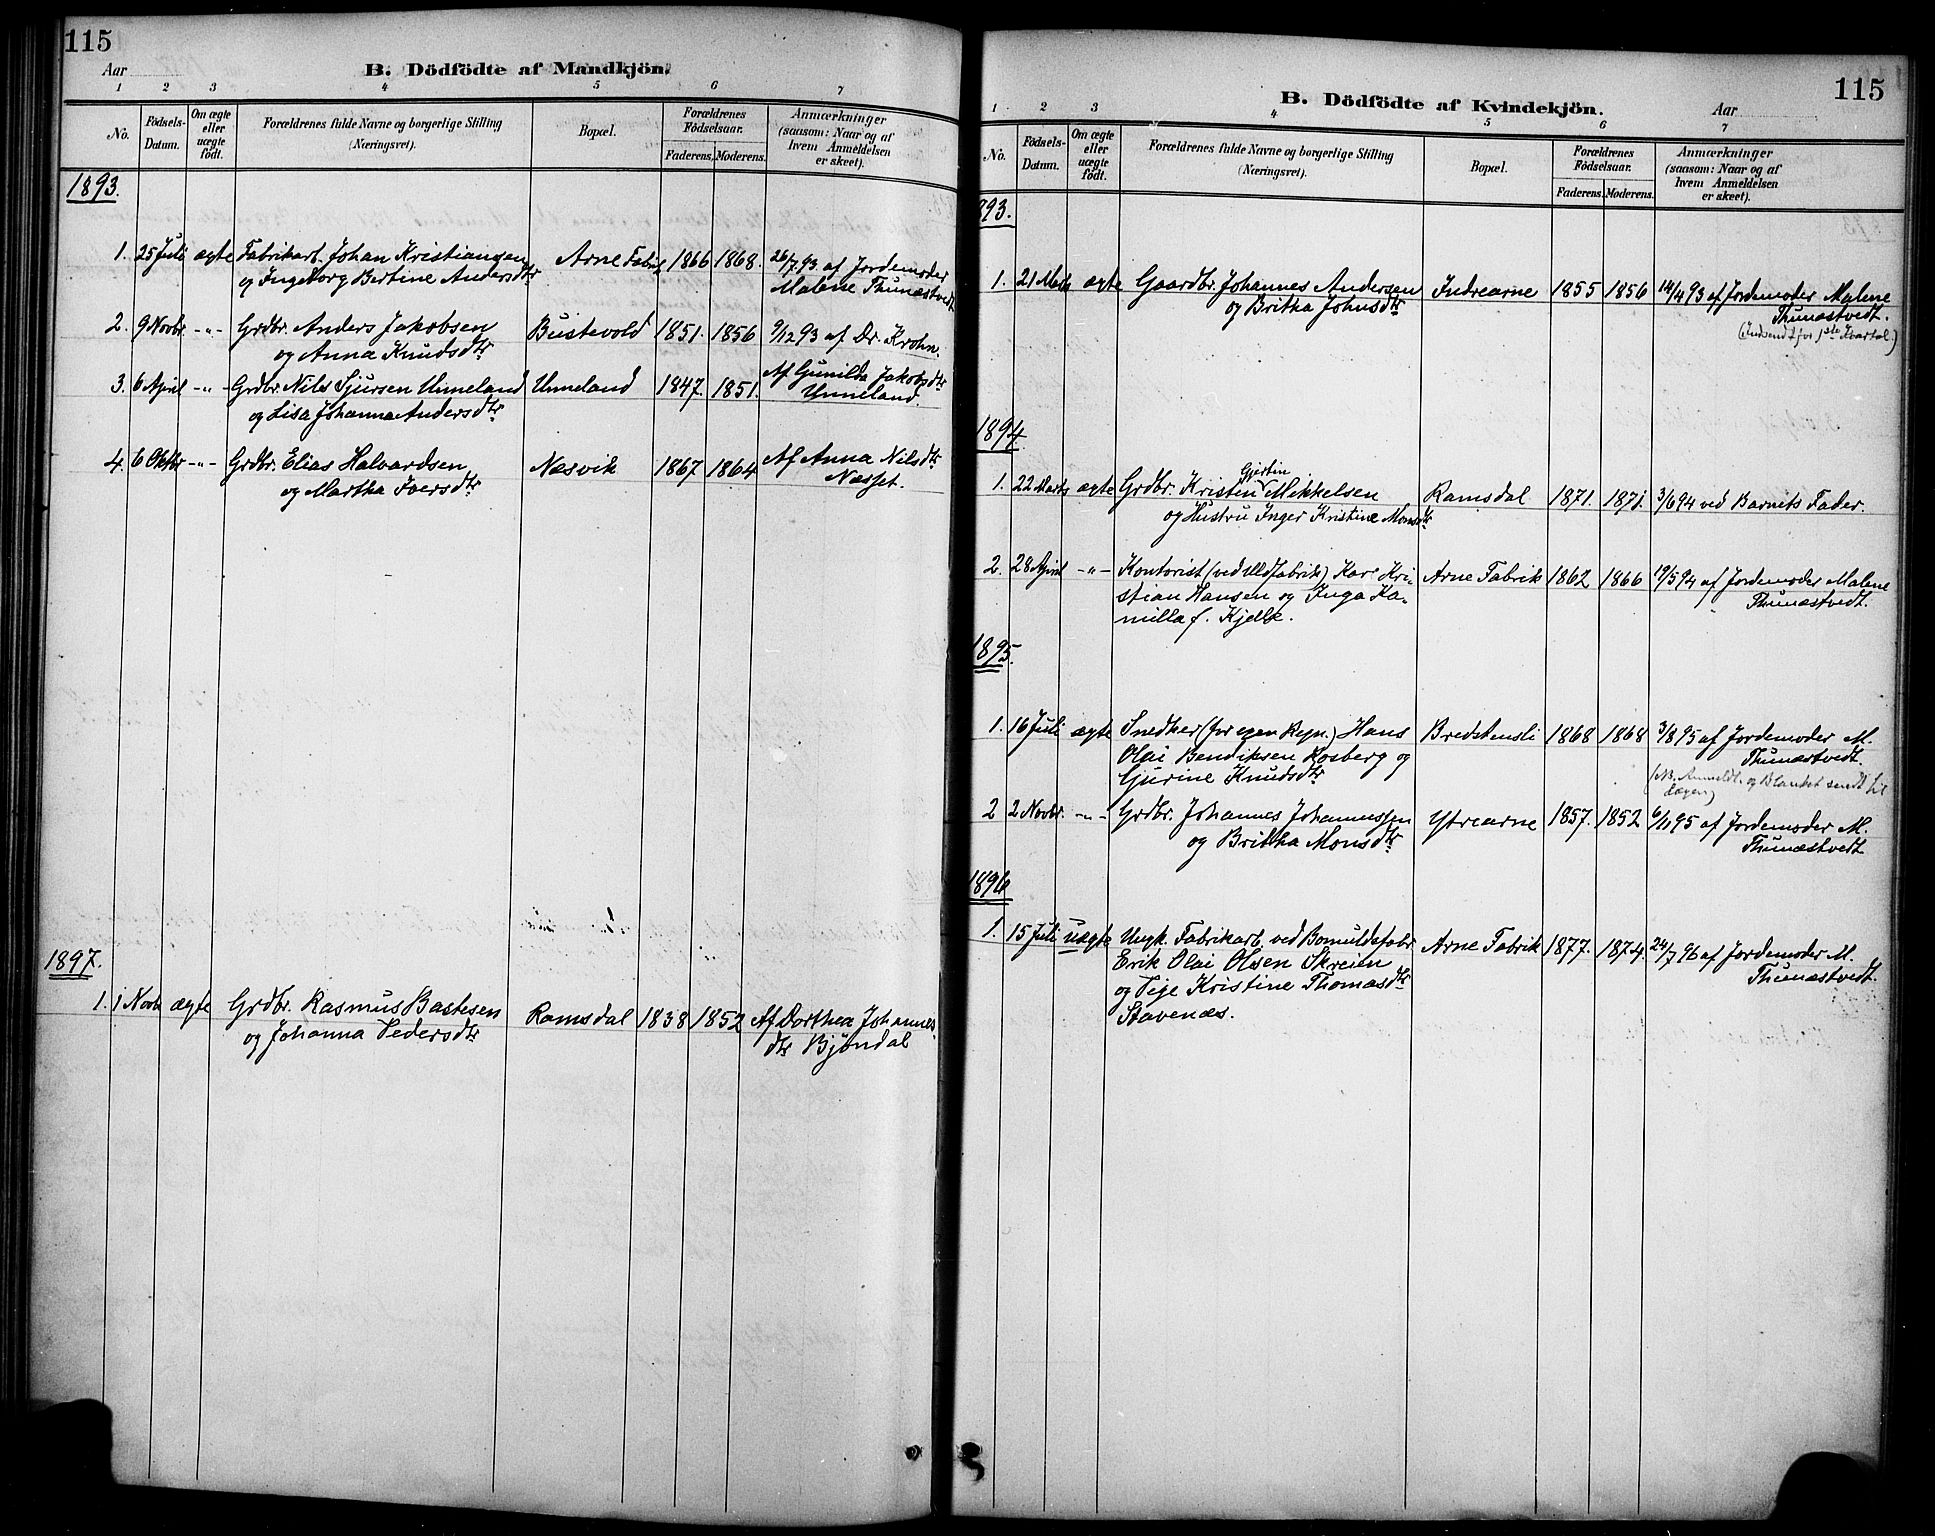 115
Aar
B. Dödfödte af Mandkjön.
1 2 3 4 5 6 7
No. Födsels-Datum. Om ægte eller uægte födt. Forældrenes fulde Navne og borgerlige Stilling (Næringsvei). Bopæl. Forældrenes Födselsaar. Faderens. Moderens. Anmærkninger (saasom: Naar og af hvem Anmeldelsen er skeet).
1893.
1. 25 Juli ægte Fabrikarb. Johan Kristiansen Arne Fabrik 1866 1868. 26/7 93. af Jordemoder
og Ingeborg Bertine Andersdtr Malene Thunæstvedt
2. 9 Novbr. -"- Grdbr. Anders Jakobsen Bustevold 1851. 1856 9/12 93 af Dr. Krohn.
og Anna Knudsdtr
3. 6 April -"- Grdbr. Nils Sjursen Unneland Unneland 1847. 1851. Af Gunilda Jakobsdtr
og Lisa Johanna Andersdtr Unneland.
4. 6 Oktbr -"- Grdbr. Elias Halvardsen Næsvik 1867 1864 Af Anna Nilsdtr
og Martha Iversdtr Næsset.
1897.
1. 1 Novbr ægte Grdbr. Rasmus Bastesen Ramsdal 1838 1852 Af Dorthea Johannes
og Johanna Pedersdtr dtr Bjöndal
115
B. Dödfödte af Kvindekjön.
Aar
1 2 3 4 5 6 7
No. Födsels-Datum. Om ægte eller uægte födt. Forældrenes fulde Navne og borgerlige Stilling (Næringsvei). Bopæl. Forældrenes Födselsaar. Faderens. Moderens. Anmærkninger (saasom: Naar og af hvem Anmeldelsen er skeet).
893.
1. 21 Marts ægte Gaardbr. Johannes Andersen Indrearne 1855 1856 14/4 93 af Jordemoder Malene
og Britha Johnsdtr Thunæstvedt.
(Indsendt for 1ste Kvartal.)
1894.
Gjertin
1. 22 Marts ægte Grdbr. Kristen Mikkelsen Ramsdal 1871. 1871. 3/6 94 ved Barnets Fader.
og Hustru Inger Kristine Monsdtr
2. 28 April -"- Kontorist (ved Uldfabrik) Karl Kri- Arne Fabrik 1862 1866 19/5 94 af Jordemoder Malene
stian Hansen og Inga Ka- Thunæstvedt.
milla f. Kjelle.
1895.
1. 16 Juli ægte Snedker (for egen Regn.) Hans Bredstensli 1868 1868 3/8 95 af Jordemoder M.
Olai Bendiksen Rosberg og Thunæstvedt.
Gjurine Knudsdtr (NB. Anmeldt. og Blanket sendt til
Lægen)
2 2 Novbr. -"- Grdbr. Johannes Johannessen Ytrearne 1857. 1852 6/11 95 af Jordemoder M.
og Britha Monsdtr Thunæstvedt
1896
1. 15 Juli uægte Ungk. Fabrikarb. ved Bomuldsfabr. Arne Fabrik 1877. 1874. 24/7 96 af Jordemoder M.
Erik Olai Olsen Skreien Thunæstvedt.
og Kristine Thomasdtr
Stavenæs.